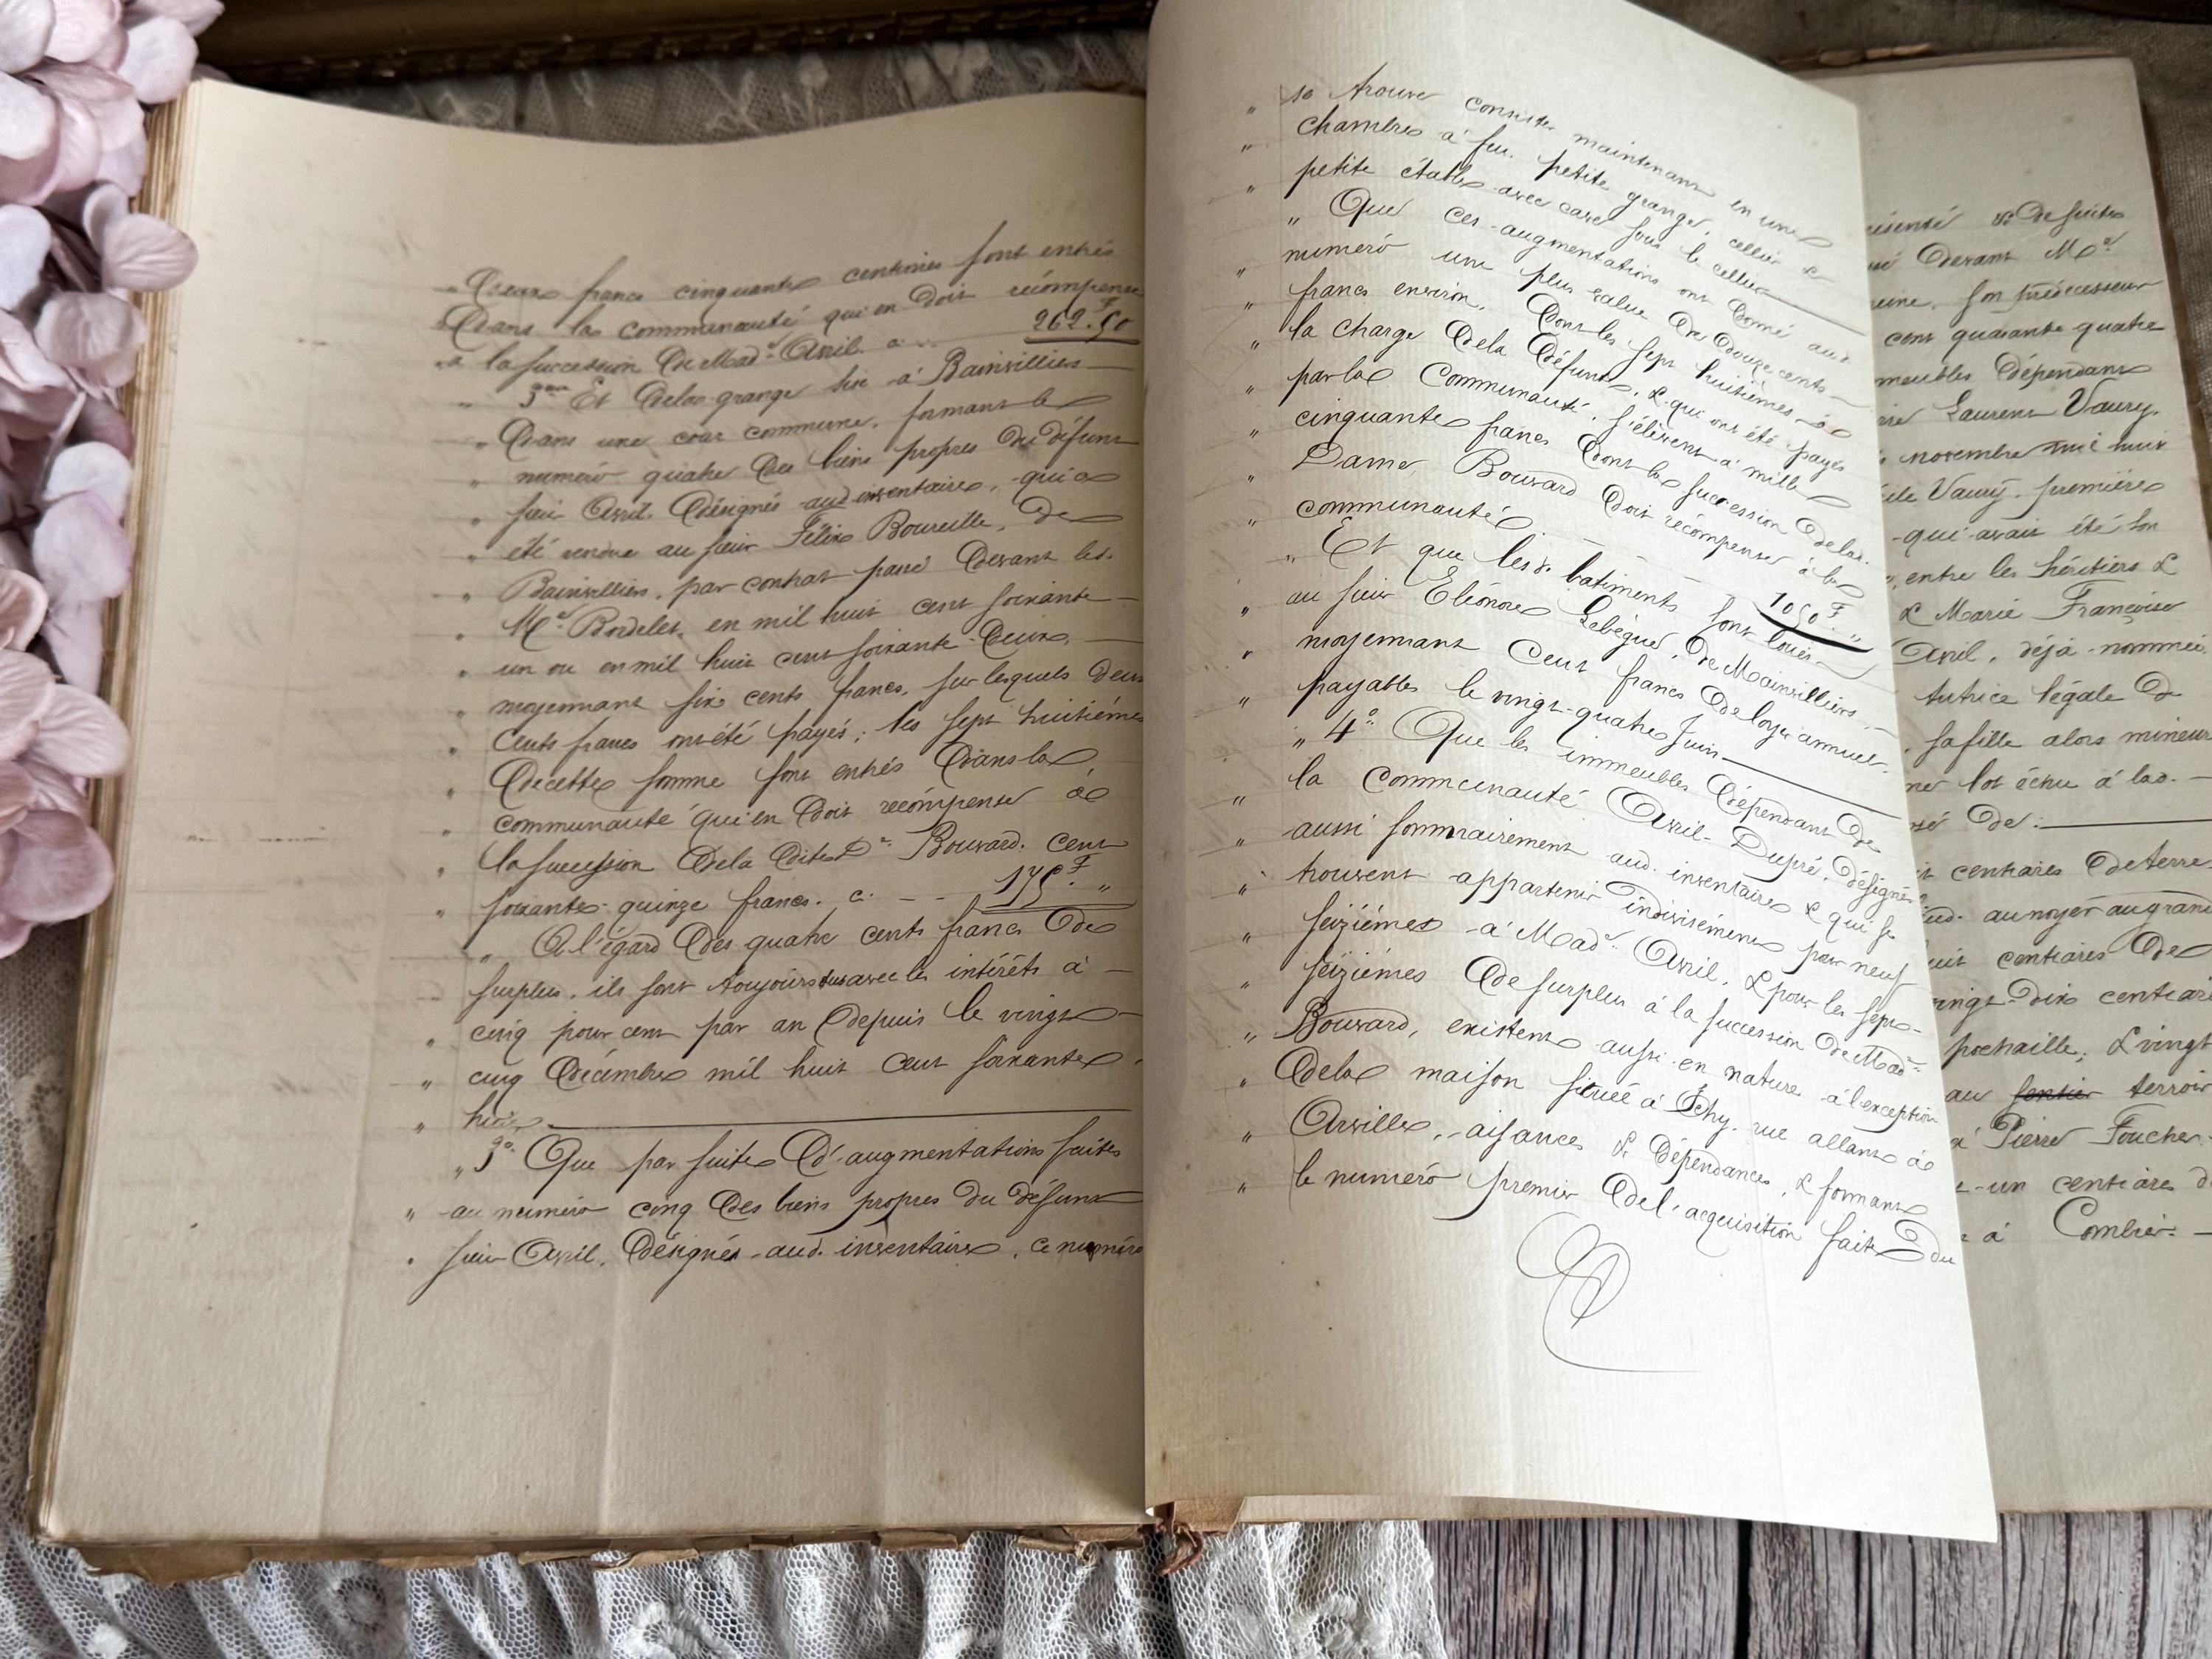 " Deux francs cinquante centimes sont entrés
" Dans la communauté qui en doit récompense
" à la succession De Mad.e Avril. ci 262.50
" 3ent Et dela grange sise à Bainvilliers
" Dans une cour commune, formant le
" numéro quatre des biens propres du défunt
" sieur Avril. Désignés aud. inventaire, qui a
" été vendue au sieur Félix Boureille, de
" Bainvilliers, par contrat passé devant led.
" Me Bordelet, en mil huit cent soixante
" un ou en mil huit cent soixante-deux,
" moyennant six cents francs, sur lesquels deux
" cents francs ont été payés; les sept huitièmes
" Decette somme sont entrés Dans la
" communauté qui en Doit recompense à
" la succession Dela Dite De Bouvard. cent
" soixante-quinze francs. ci. 175.F "
" A l'égard Des quatre cents francs De
" surplus, ils sont toujours dus avec les intérêts à
" cinq pour cent par an Depuis le vingt
" cinq Décembre mil huit cent soixante
" huit
" 3° Que par suite D'augmentations faites
" au numéro cinq Des biens propres Du défunt
" sieur Avril, Désignés aud. inventaire, ce numéro
" se trouve consister maintenant en une
" chambre à feu, petite grange, cellier &
" petite étable avec cave sous le cellier
" Que ces augmentations ont Donné aud.
" numéro une plus value De Douze cents
" francs environ, Dont les sept huitièmes à
" la charge Dela Défunte, & qui ont été payés
" par la Communauté, s'élèvent à mille
" cinquante francs Dont la succession Delad.
" Dame Bouvard Doit récompense à la
" communauté 1050F "
" Et que lesd. batiments sont loués
" au sieur Eléonore Lebègue, De Mainvilliers
" moyennant Cent francs De loyer annuel,
" payables le vingt-quatre Juin
" 4° Que les immeubles Dépendant De
" la Communauté Avril-Dupré, Désignés
" aussi sommairement aud. inventaire & qui se
" trouvent appartenir indivisément pour neuf
" seizièmes à Made Avril, & pour les sept
" seizièmes De surplus à la succession De Made
" Bouvard, existent aussi en nature à l'exception
" Dela maison située à Ichy, rue allant à
" Arville, aisances & Dépendances, & formant
" le numéro premier De l'acquisition faite Du
ésenté & De suite
Devant Me
son prédécesseur
cent quarante quatre
meubles Dépendant
Laurent Vaury,
novembre mil huit
Vaury, première
qui avait été son
entre les héritiers &
& Marie Françoise
Avril, déjà nommée,
tutrice légale De
sa fille alors mineure
lot échu à lad.
De:
centiares De terre
au noyer au grand
centiares De
vingt-Dix centiares
pochaille, & vingt
au sentier terroir
à Pierre Foucher
-un centiares De
à Combier.